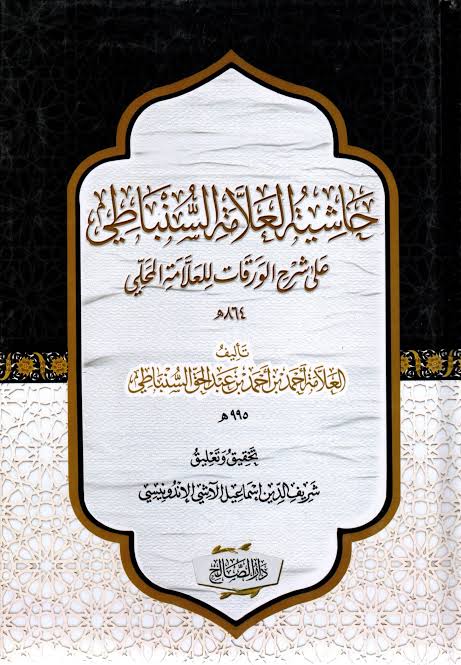 حَاشِيَةُ العَلَّامَةِ السُّنْبَاطِي
عَلَى شَرْحِ الوَرَقَاتِ لِلعَلَّامَةِ المَحَلِّي
٨٦٤هـ
تَأليفُ
العَلَّامَة أحمَد بْن أحمَد بْن عَبْد الحَق السُّنْبَاطِي
٩٩٥هـ
تَحْقِيقُ وَتَعْلِيقُ
شَرِيف الدِين إسْمَاعِيل الآشي الإندُونِيسِي
دَارُ الصَّالِح